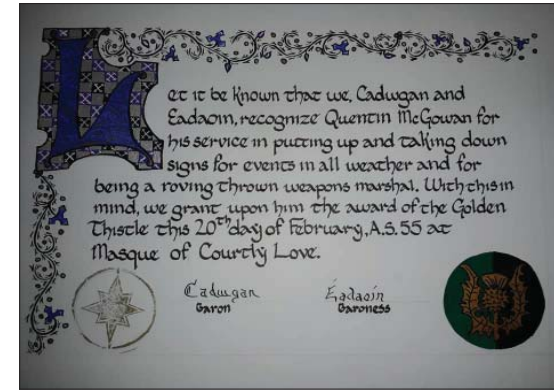 Let it be known that we, Cadwgan and
Eadaoin, recognize Quentin McGowan for
his service in putting up and taking down
signs for events in all weather and for
being a roving thrown weapons marshal. With this in
mind, we grant upon him the award of the Golden
Thistle this 20th day of February, A.S. 55 at
Masque of Courtly Love.
Cadwgan Éadaoin
Baron Baroness